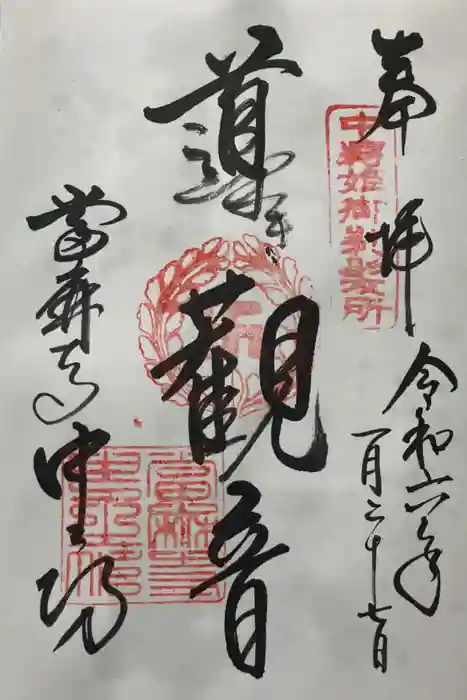 奉拝
令和六年
一月二十七日
中将姫御剃髪所
導き観音
當麻寺
中之坊